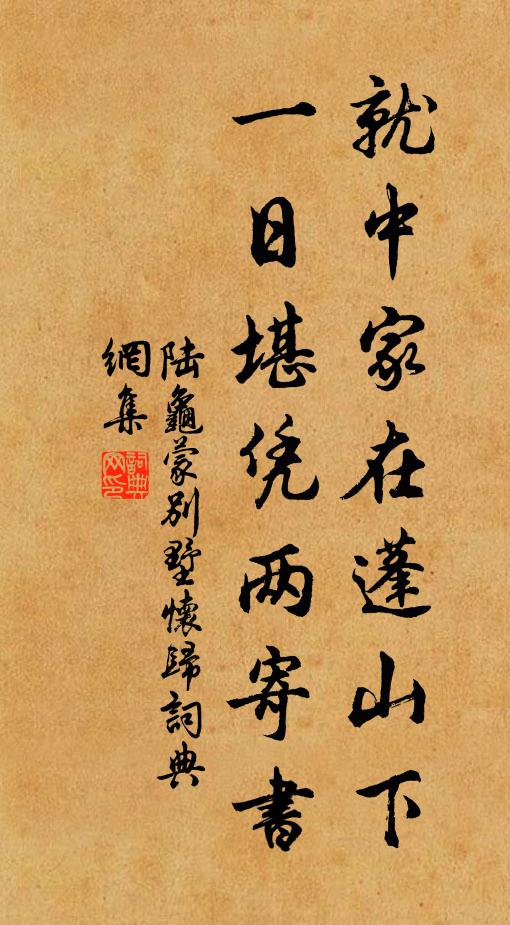 就中家在蓬山下
一日堪凭两寄書
陆龜蒙别墅懷歸詞典
網集
詞典
网印